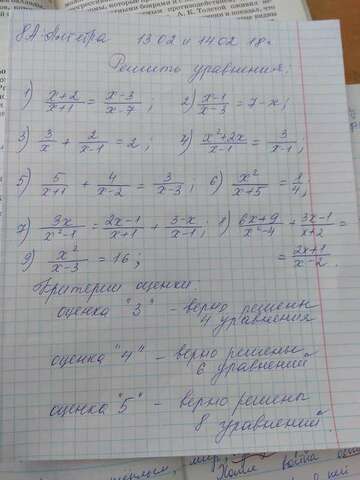 8А Алгебра 13.02 и 14.02 18г.
Решить уравнения:
1) (x+2)/(x+1) = (x-3)/(x-7); 2) (x-1)/(x-3) = 7-x;
3) 3/x + 2/(x-1) = 2; 4) (x²+2x)/(x-1) = 3/(x-1);
5) 5/(x+1) + 4/(x-2) = 3/(x-3); 6) x²/(x+5) = 1/4;
7) 3x/(x²-1) = (2x-1)/(x+1) + (3-x)/(x-1); 8) (6x+9)/(x²-4) + (3x-1)/(x+2) =
9) x²/(x-3) = 16; = (2x+1)/(x-2).
Критерии оценки:
оценка "3" - верно решены
4 уравнения
оценка "4" - верно решены
6 уравнений
оценка "5" - верно решены
8 уравнений.